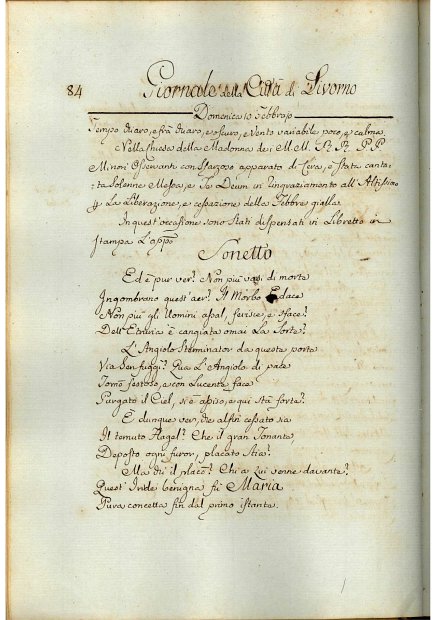 84 Giornale della Città di Livorno
Domenica 10 Febbrajo
Tempo chiaro, e frà chiaro, e oscuro, e vento variabile poco, e calma.
Nella chiesa della Madonna de i M. M. R. R. P. P.
Minori Osservanti con sfarzoso apparato di Cera, è stata canta=
=ta solenne Messa, e Te Deum in ringraziamento all' Altissimo
p la Liberazione, e cessazione della Febbre gialla
In quest'occasione sono stati dispensati vi Libretto in
stampa L'app.o
Sonetto
Ed è pur ver? Non più vasi di morte
Ingombrano quest'aer? Il Morbo Edace
Non più gli Uomini assal, ferisce, e sface?
Dell'Etruria è cangiata omai La sorte?
L'Angiolo sterminator da questa porta
Via sen fuggì? Qua L'Angiolo di pace
Tornò festoso, e con Lucente face
Purgato il Ciel, si è assiso, e qui stà forte?
E dunque ver, che alfin cessato sia
Il temuto Flagel? Che il gran Tonante
Deposto ogni furor, placato stia?
Ma chi il placò? Chi a Lui venne davante?
Quest' Iride benigna fù Maria
Pura concetta fin dal primo istante.